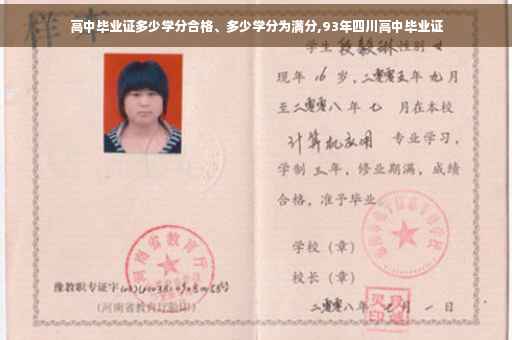 高中毕业证多少学分合格、多少学分为满分,93年四川高中毕业证
样本
学生 段毅琳 性别 女
现年 16 岁，二零零五年 九月
至二零零八年 七 月在本校
计算机应用 专业学习，
学制 三年，修业期满，成绩
合格，准予毕业
学校（章）
校长（章）
二零零八年 七月 一日
河南省教育厅
豫教职专证字
（河南省教育厅验印）